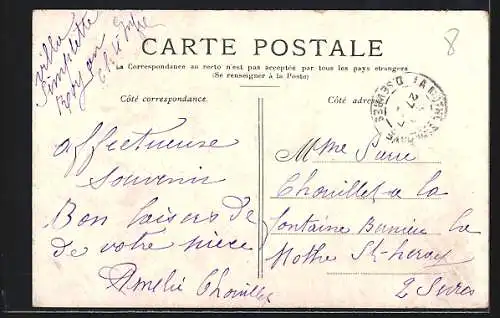 Villa
Simplette
Royan
CARTE POSTALE
La Correspondance au recto n'est pas acceptée par tous les pays étrangers
(Se renseigner à la Poste)
Côté correspondance.
Côté adresse
8
affectueuse
souvenir
Bon baisers de
de votre nièce
Amélie Chouillet
Mme
Chouillet a la
fontaine La
Mothe St-heray
2 Sèvres